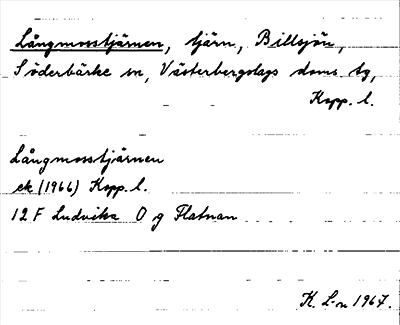 Långmosstjärnen, tjärn, Billsjön,
Söderbärke sn, Västerbergslags doms. tg,
Kopp. l.
Långmosstjärnen
ek (1966) Kopp. l.
12 F Ludvika O g Flatnan
K. L-n 1967.